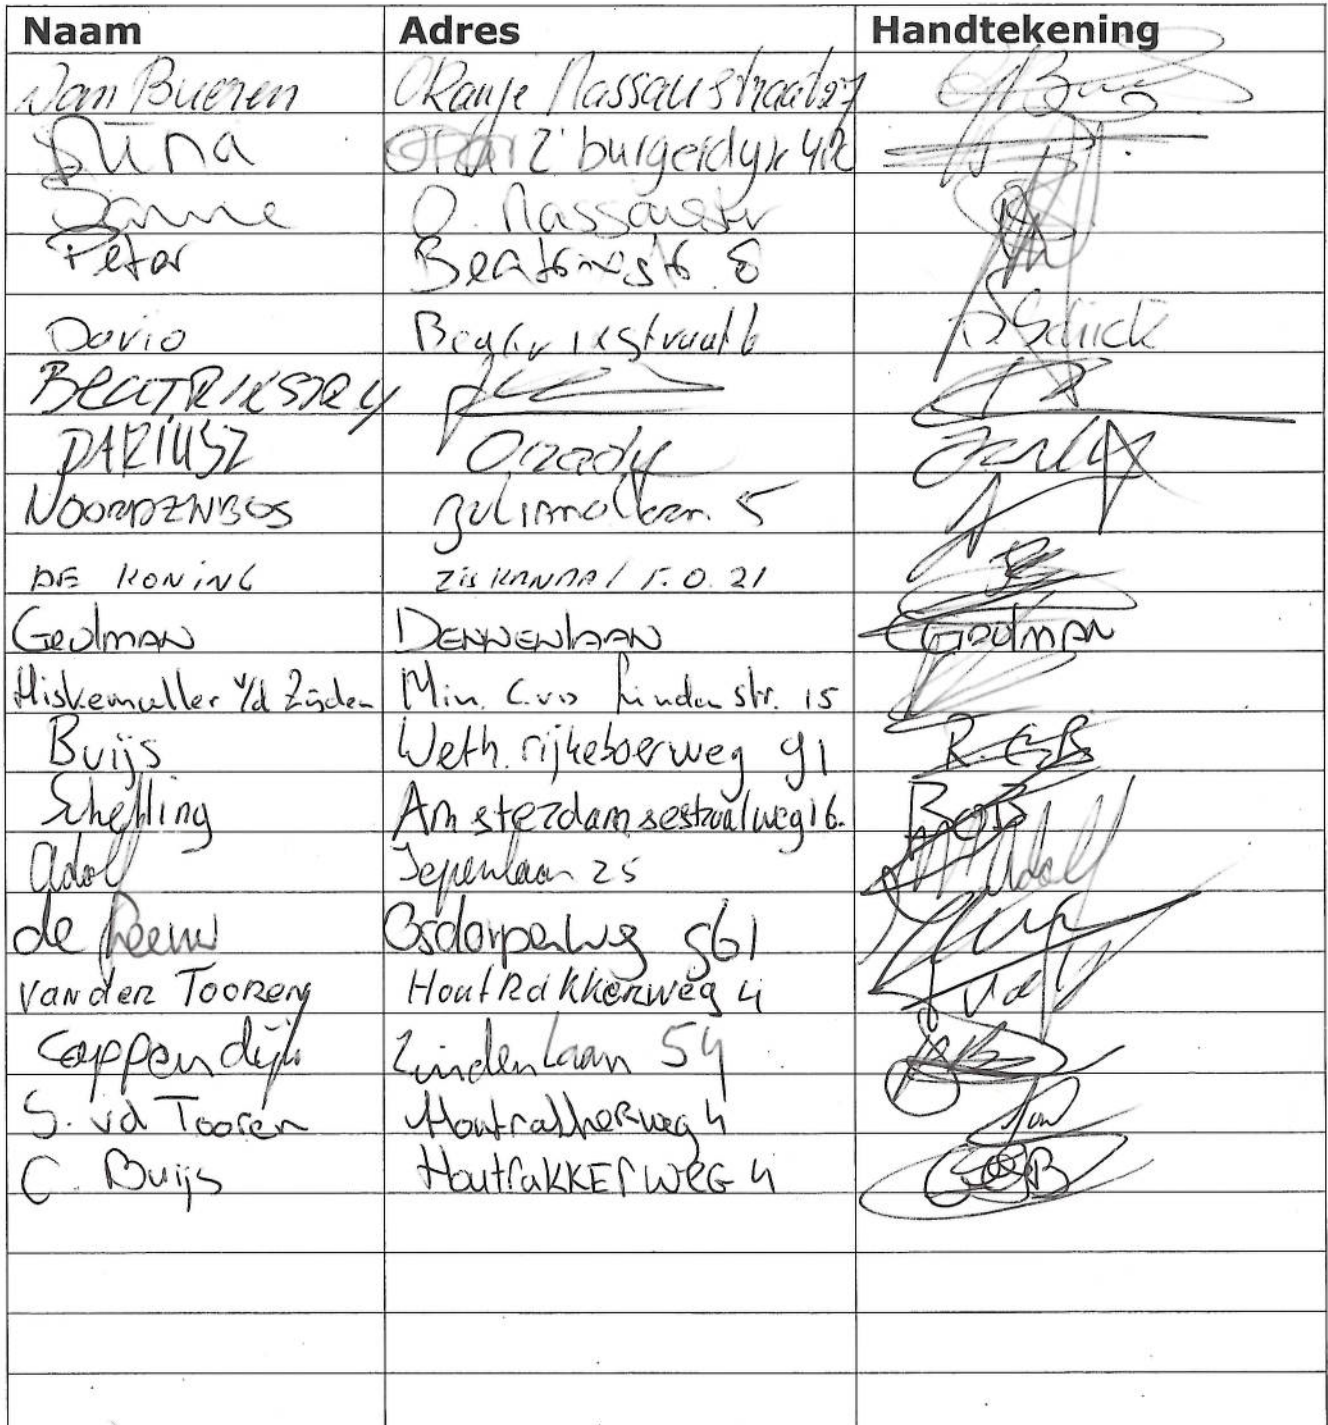 Naam Adres Handtekening
van Bueren Oranje Nassaustraat 27
Dúna Z'burgerdyk 412
Sanne O. Nassaustr
Peter Beatrixstr 8
David Beatrixstraat 6 D. Schick
BEATRIKSTR 4
DARIUSZ
NOORDZNBOS Julianalaan 5
DE KONING Zijkanaal F.O. 21
Geulman DENNENLAAN Geulman
Miskemuller v/d Zijden Min. C. v/d Lindenstr. 15
Buijs Weth. rijkeboerweg 91 R. C B
Schelling Amsterdamsestraatweg 16. BOB
Adolf Iepenlaan 25 Adolf
de Leeuw Osdorperweg 561
van der Tooren Houtrakkerweg 4
Coppendijk Lindenlaan 54
S. vd Tooren Houtrakkerweg 4
C. Buijs HoutrakkERWEG 4 CB